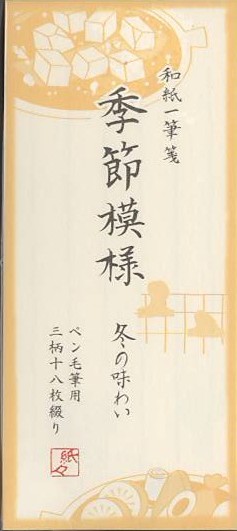 和紙一筆箋
季節模様
冬の味わい
ペン毛筆用
三柄十八枚綴り
紙々